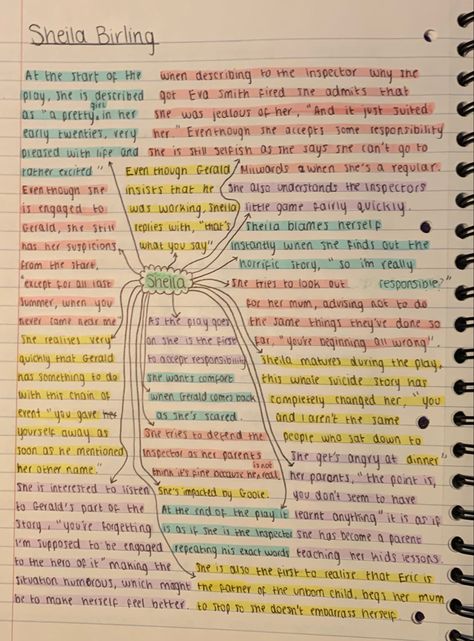 Sheila Birling
At the start of the
play, she is described
as "a pretty girl in her
early twenties, very
pleased with life and
rather excited"
when describing to the Inspector why she
got Eva Smith fired she admits that
she was jealous of her, "And it just suited
her." Eventhough she accepts some responsibility
she is still selfish as she says she can't go to
Milwards when she's a regular.
Even though Gerald
insists that he
was working, Sheila
replies with, "that's
what you say"
She also understands the Inspectors
little game fairly quickly.
Eventhough she
is engaged to
Gerald, she still
has her suspicions,
from the start,
"except for all last
summer, when you
never came near me"
Sheila blames herself
instantly when she finds out the
horrific story, "so i'm really
responsible?"
She tries to look out
for her mum, advising not to do
the same things they've done so
far, "you're beginning all wrong".
Sheila
As the play goes
on she is the first
to accept responsibility
She realises very
quickly that Gerald
has something to do
with this chain of
event "you gave
yourself away as
soon as he mentioned
her other name."
She wants comfort
when Gerald comes back
as she's scared.
Sheila matures during the play,
this whole suicide story has
completely changed her, "you
and I aren't the same
people who sat down to
dinner"
She tries to defend the
Inspector as her parents
think it's fine because he is not real.
She get's angry at
her parents, "the point is,
you don't seem to have
learnt anything" it is as if
she has become a parent
teaching her kids lessons.
She's impacted by Goole.
At the end of the play it
is as if she is the Inspector
repeating his exact words
She is interested to listen
to Gerald's part of the
story, "you're forgetting
I'm supposed to be engaged
to the hero of it" making the
situation numerous, which might
be to make herself feel better.
She is also the first to realise that Eric is
the father of the unborn child, begs her mum
to stop so she doesn't embarrass herself.